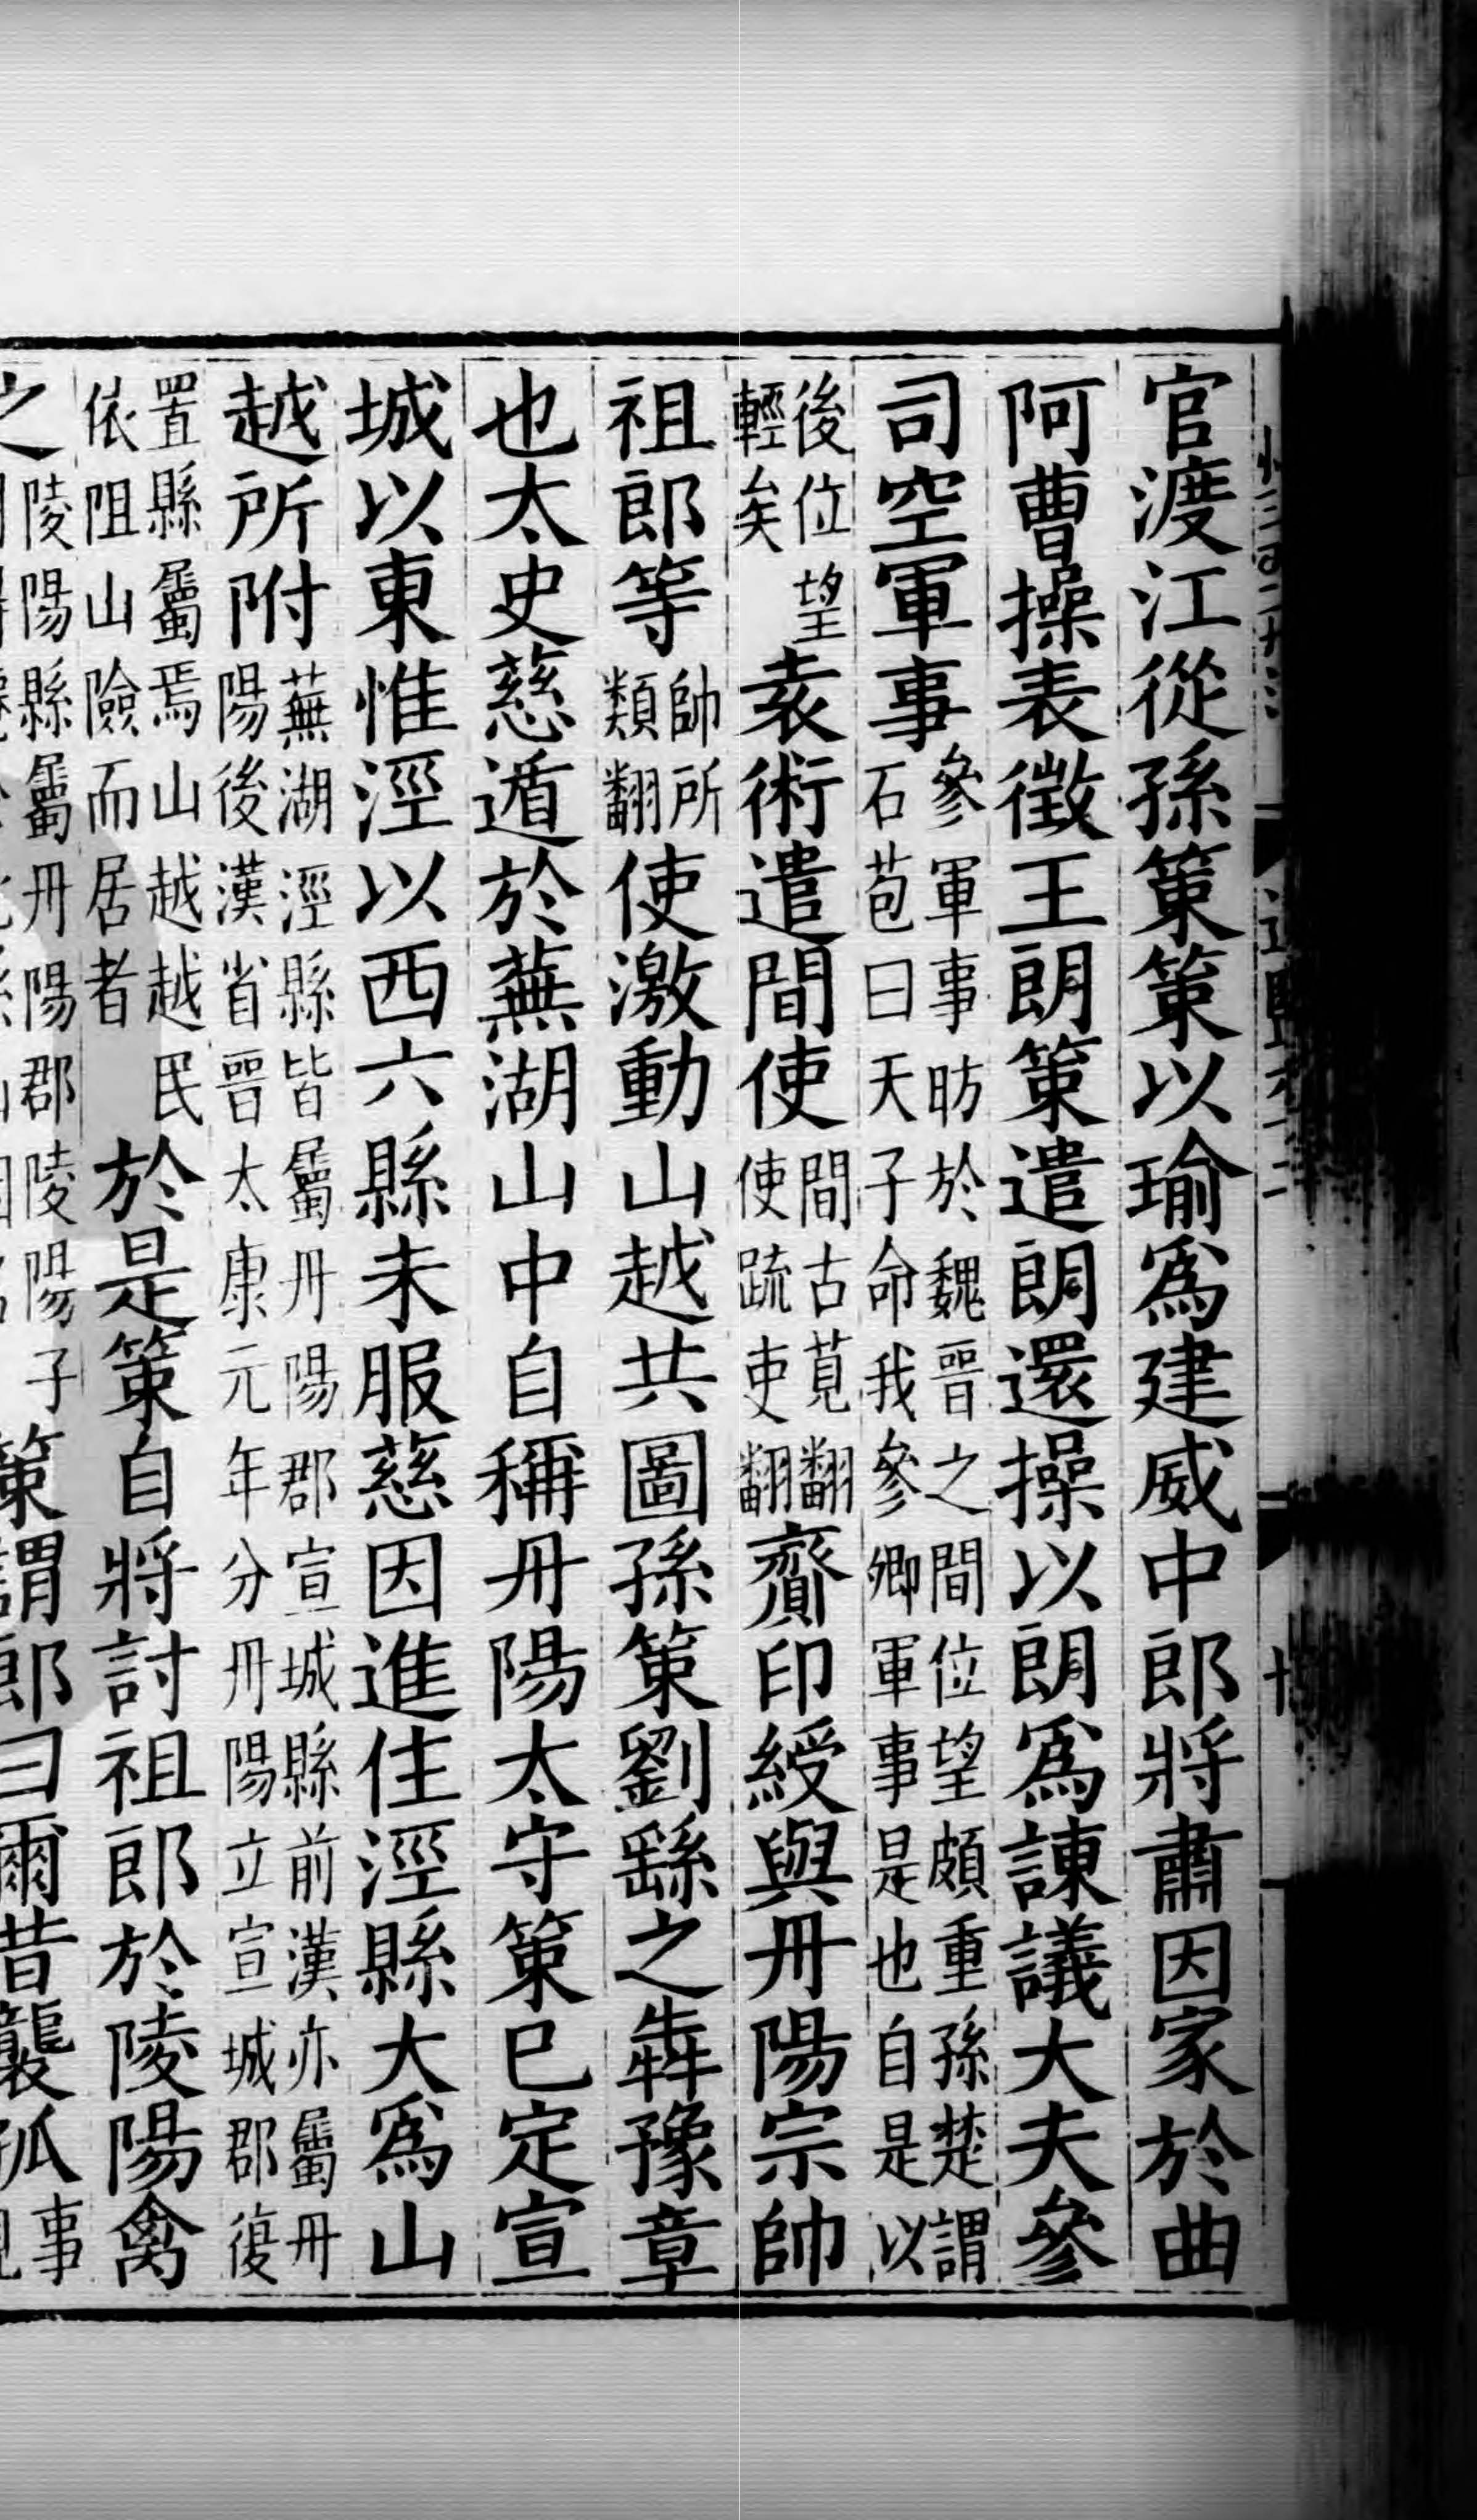 官渡江從孫策策以瑜爲建威中郎將肅因家於曲
阿曹操表徵王朗策遣朗還操以朗爲諫議大夫參
司空軍事參軍事昉於魏晉之間位望頗重孫楚謂石苞曰天子命我參卿軍事是也自是以
後位望輕矣袁術遣間使間古莧翻使疏吏翻齎印綬與丹陽宗帥
祖郎等帥所類翻使激動山越共圖孫策劉繇之犇豫章
也太史慈遁於蕪湖山中自稱丹陽太守策已定宣
城以東惟涇以西六縣未服慈因進住涇縣大爲山
越所附蕪湖涇縣皆屬丹陽郡宣城縣前漢亦屬丹陽後漢省晉太康元年分丹陽立宣城郡復
置縣屬焉山越越民依阻山險而居者於是策自將討祖郎於陵陽禽
之陵陽縣屬丹陽郡陵陽子策謂郎曰爾昔襲孤事